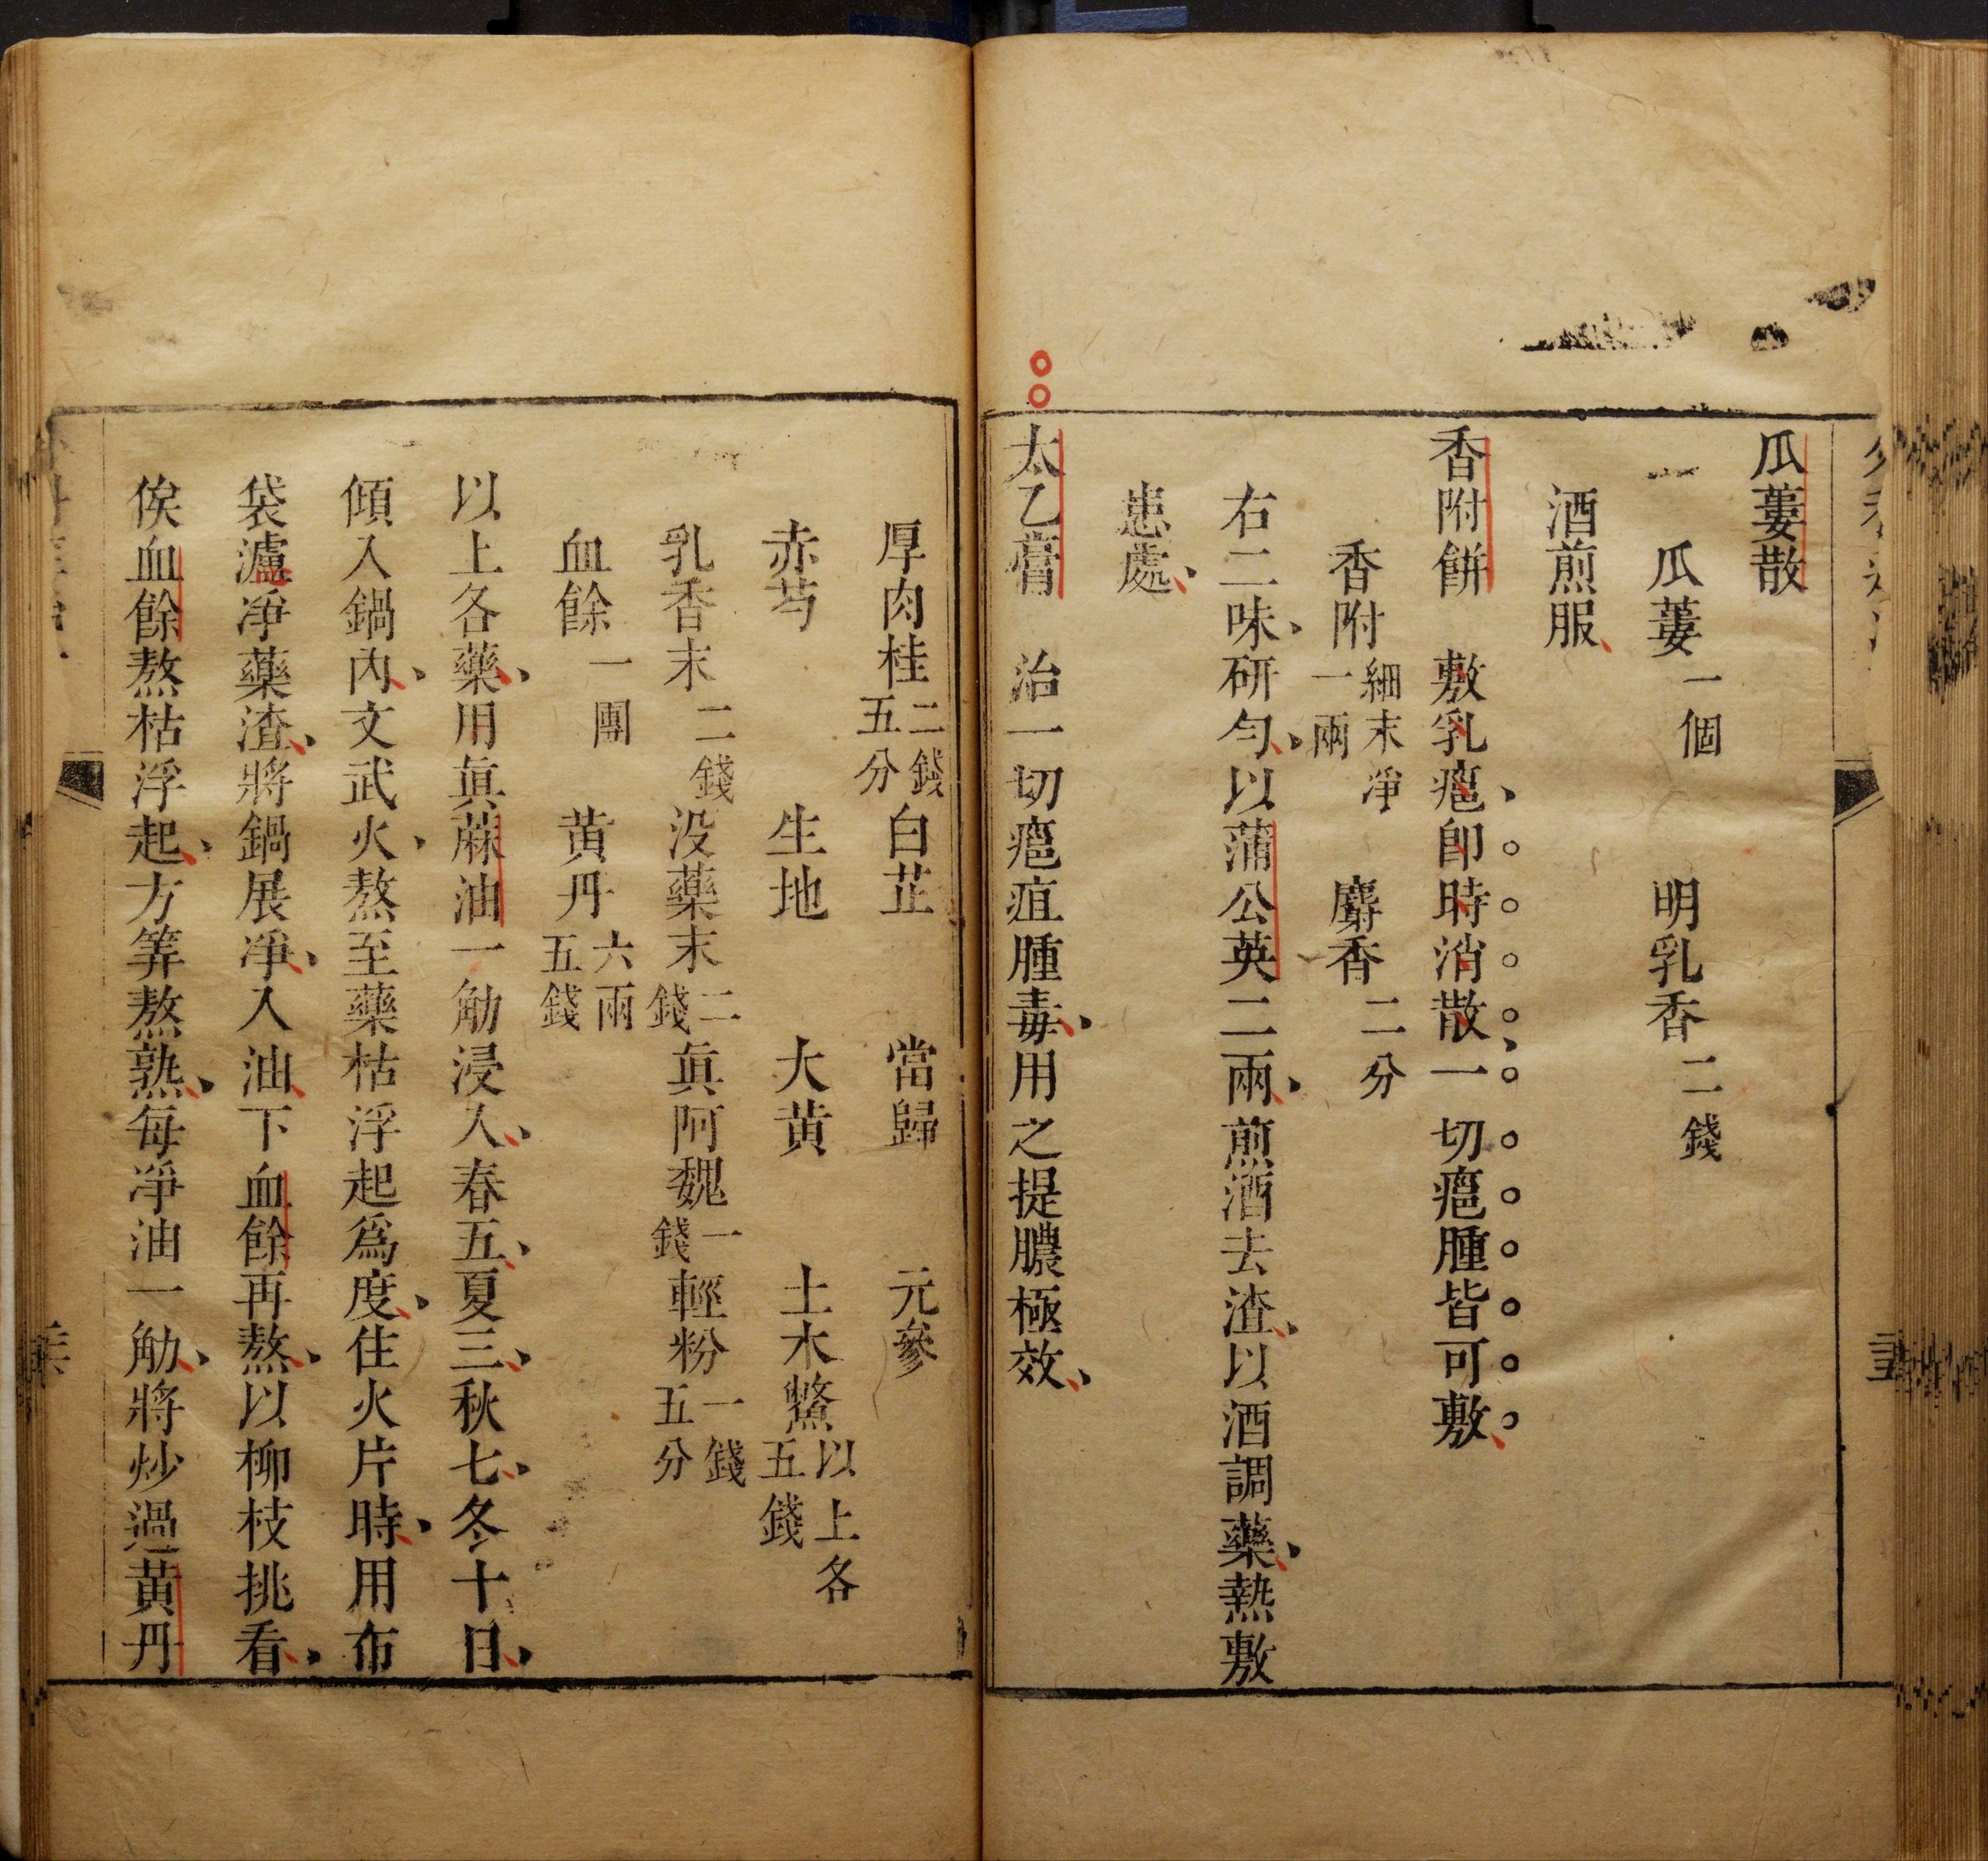 瓜蔞散
瓜蔞一個 明乳香二錢
酒煎服
香附餅 敷乳癰即時消散一切癰腫皆可敷
香附細末淨一兩 麝香二分
右二味研勻以蒲公英二兩煎酒去渣以酒調藥熱敷
患處
太乙膏 治一切癰疽腫毒用之提膿極效
厚肉桂二錢五分 白芷 當歸 元參
赤芍 生地 大黃 土木鱉以上各五錢
乳香末二錢 没藥末二錢 眞阿魏一錢 輕粉一錢五分
血餘一團 黃丹六兩五錢
以上各藥用眞蔴油一觔浸入春五夏三秋七冬十日
傾入鍋內文武火熬至藥枯浮起爲度住火片時用布
袋瀘淨藥渣將鍋展淨入油下血餘再熬以柳枝挑看
俟血餘熬枯浮起方筭熬熟每淨油一觔將炒過黃丹